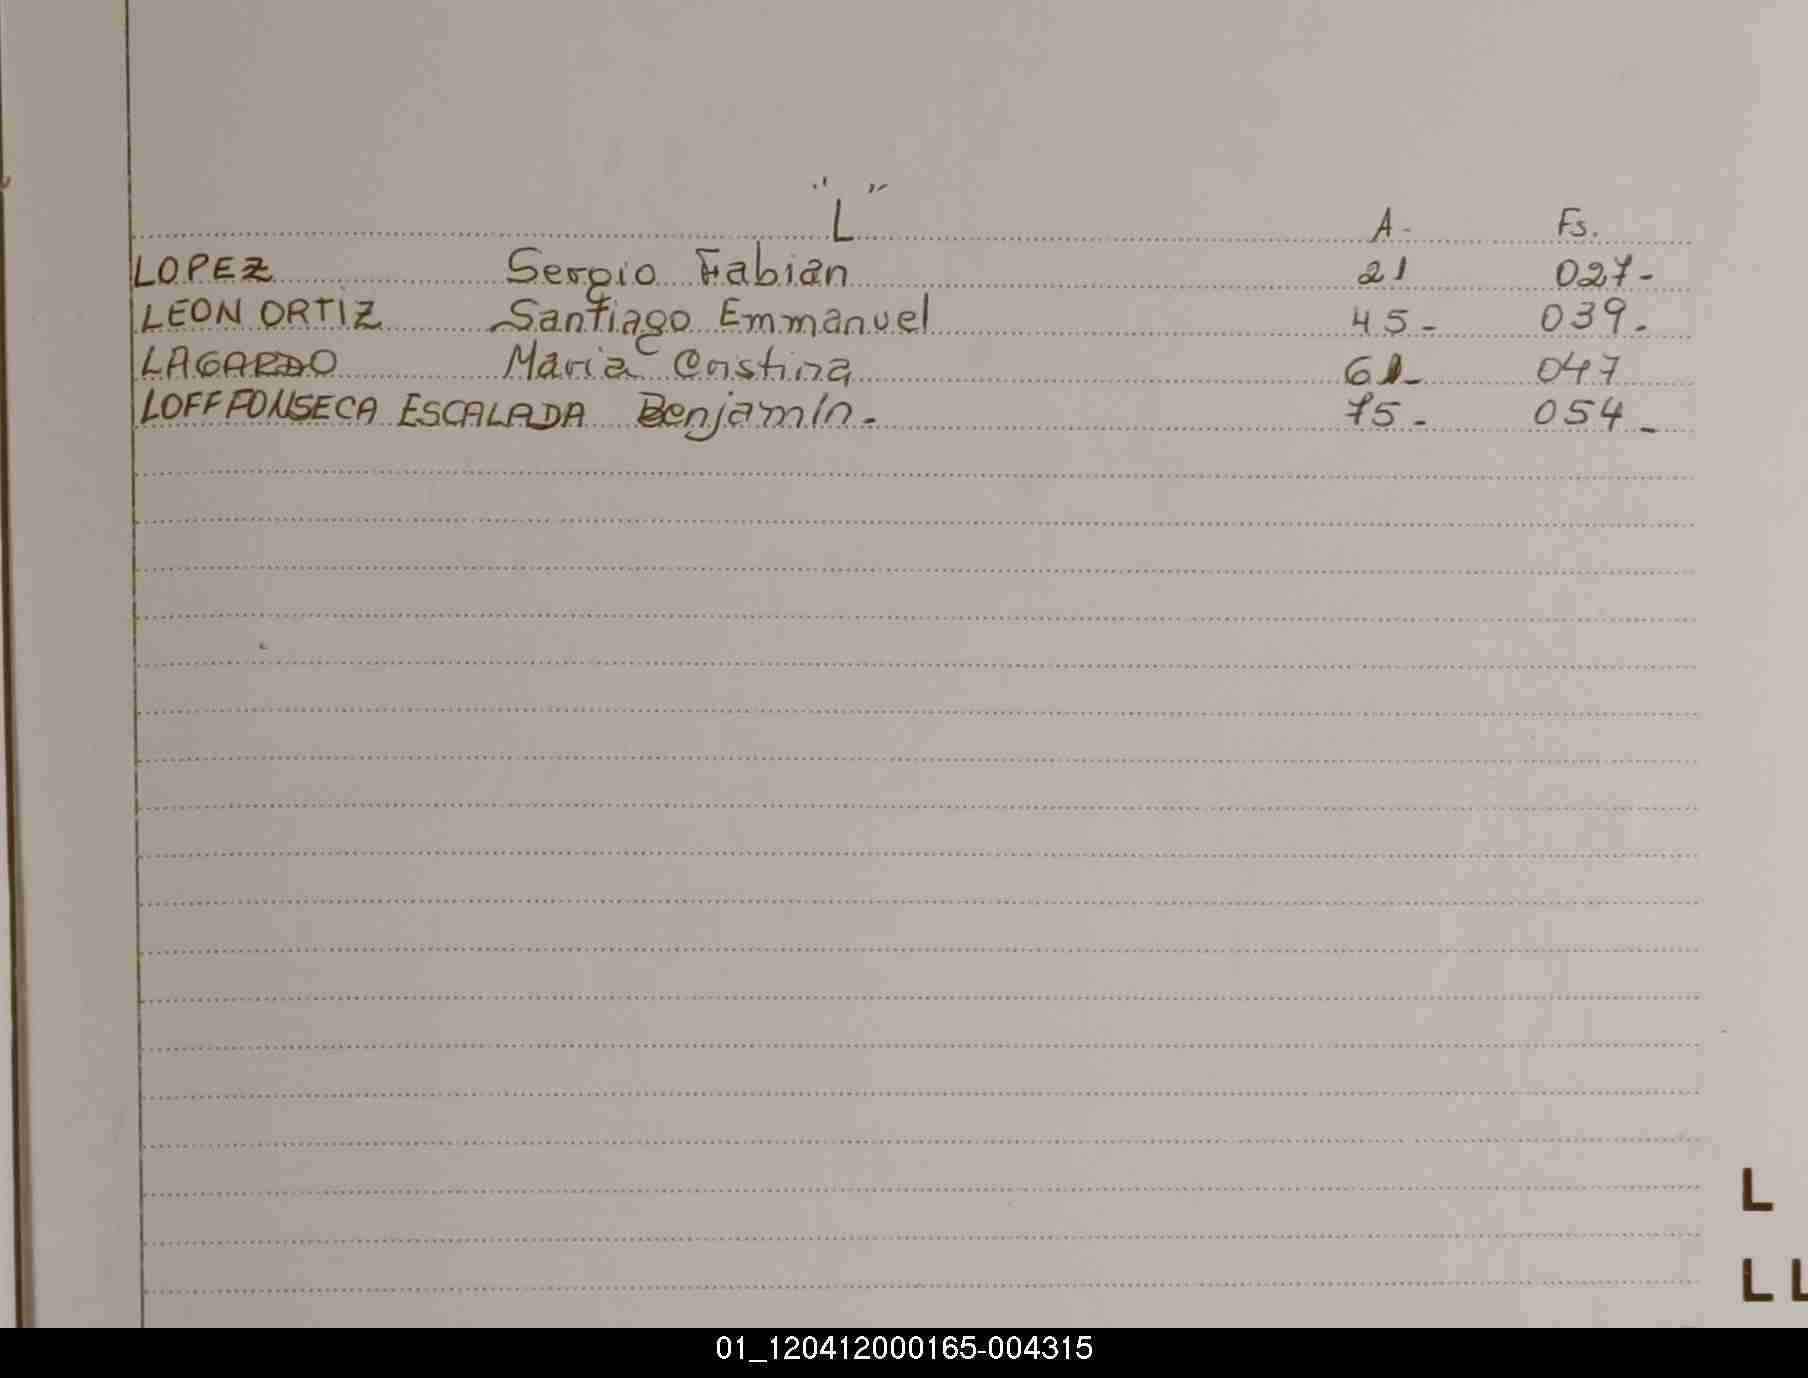 "L" A- Fs.
LOPEZ Sergio Fabián 21 027-
LEON ORTIZ Santiago Emmanuel 45- 039-
LAGARDO Maria Cristina 61- 047
LOFF FONSECA ESCALADA Benjamín- 75- 054-
L
LL
01_120412000165-004315